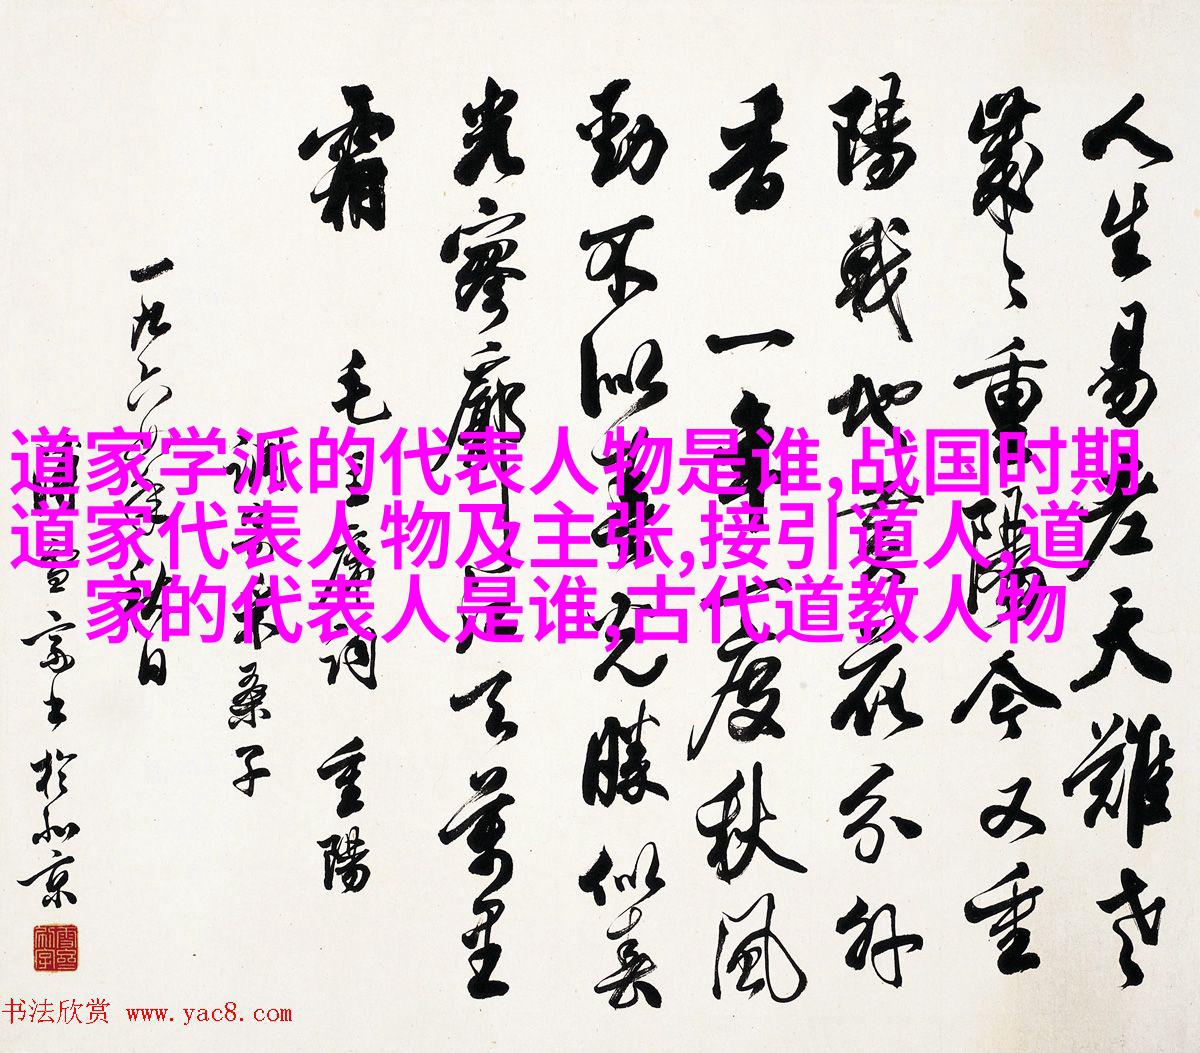 人生易老天難老
歲々重陽今又重
陽戰地黃花分外
香 一年一度秋風
勁不似春光勝似春
光寥廓江天萬里
霜
毛主席词 重陽
調寄采桑子
一九六 年秋日
书於北京
道家学派的代表人物是谁,战国时期
道家代表人物及主张,接引道人,道
家的代表人是谁,古代道教人物
书法欣赏 www.yac8.com